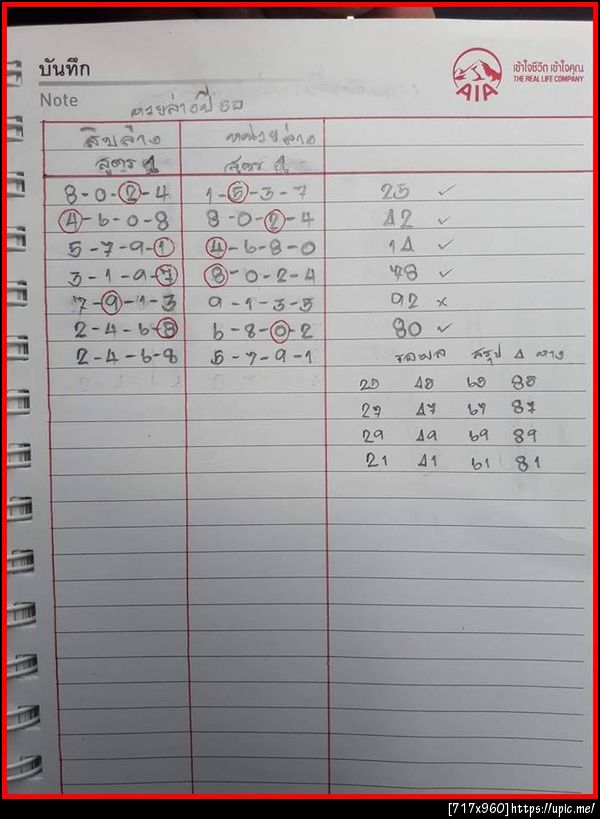 บันทึก
Note
เข้าใจชีวิต เข้าใจคุณ
THE REAL LIFE COMPANY
AIA
หวยล่างปี 60
สิบล่าง หน่วยล่าง
สูตร 1 สูตร 1
8-0-2-4 1-5-3-7 25 ✓
4-6-0-8 8-0-2-4 42 ✓
5-7-9-1 4-6-8-0 14 ✓
3-1-9-7 8-0-2-4 78 ✓
7-9-1-3 9-1-3-5 92 ×
2-4-6-8 6-8-0-2 80 ✓
2-4-6-8 5-7-9-1 รอผล สรุป 4 หาง
25 45 65 85
27 47 67 87
29 49 69 89
21 41 61 81
[717x960]https://upic.me/